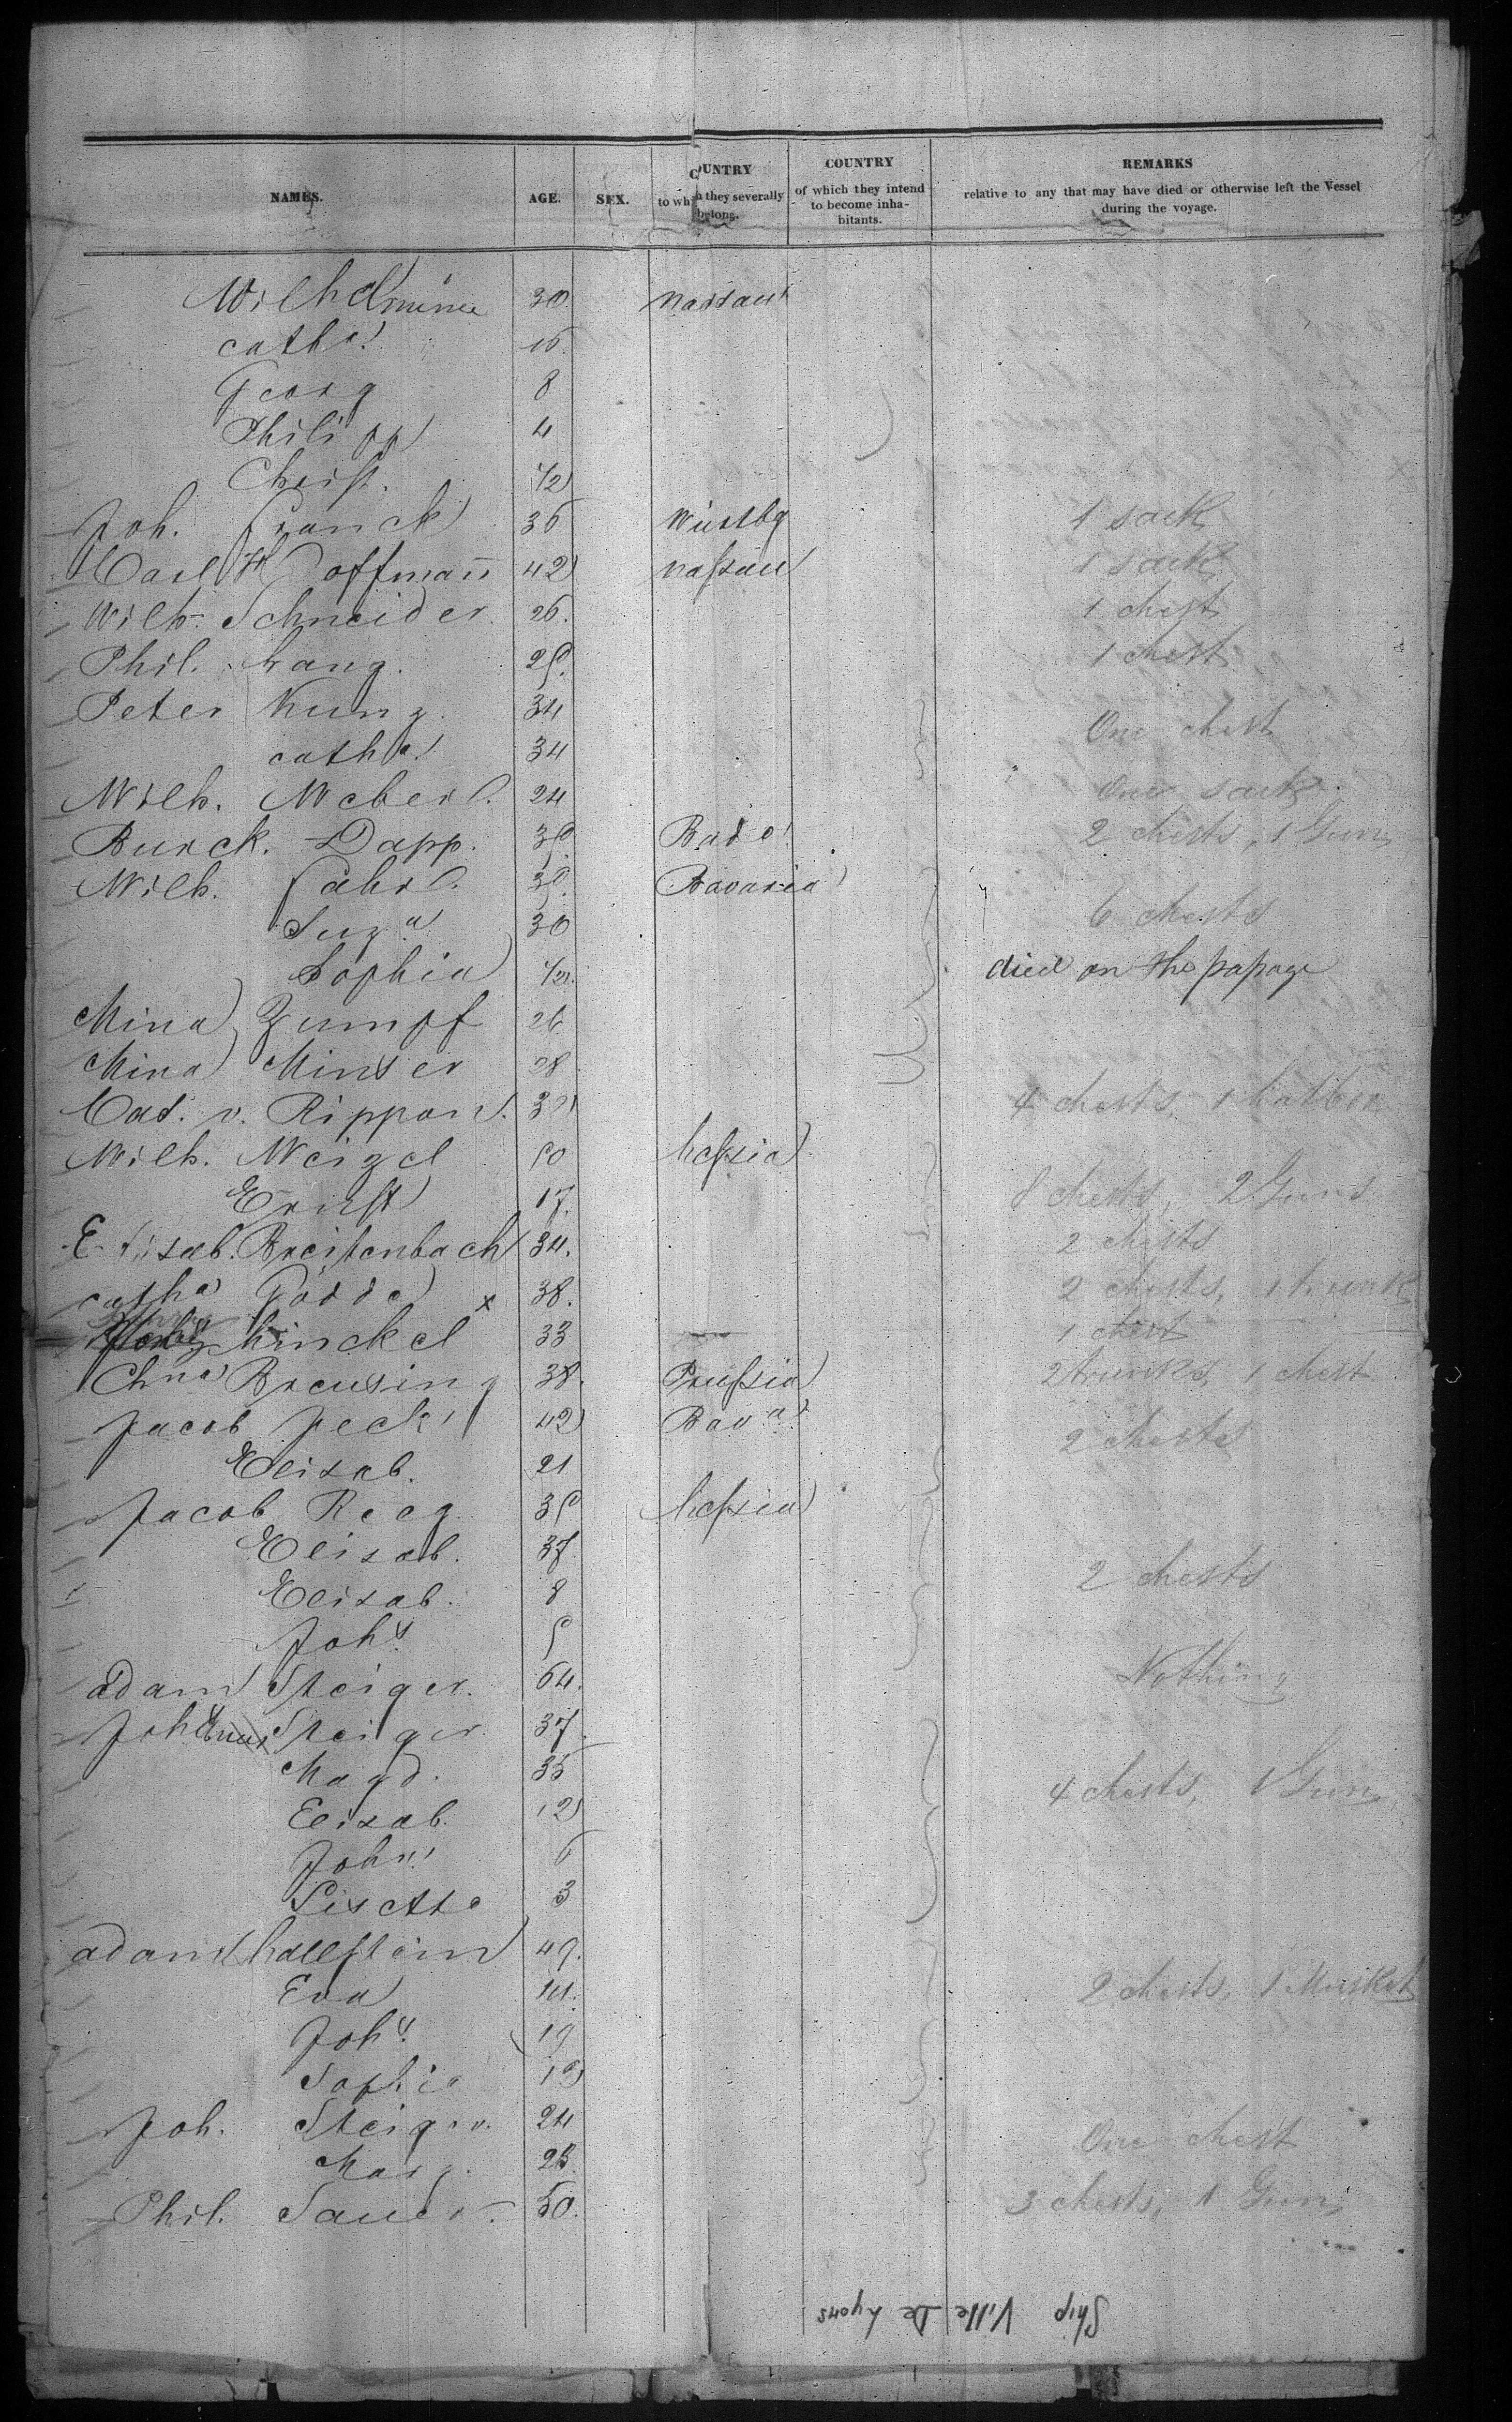 NAMES. AGE. SEX. COUNTRY to which they severally belong. COUNTRY of which they intend to become inhabitants. REMARKS relative to any that may have died or otherwise left the Vessel during the voyage.
Wilhelmine 30 Nassau
Catha. 16
Georg 8
Philipp 4
Christ. 1/2
Joh. Franck 36 Würtbg 1 sack
Carl Hoffmann 42 Nassau 1 sack
Wilh. Schneider 26. 1 chest
Phil. Lang. 25. 1 chest
Peter Kunz 34 One chest
Catha. 34
Wilh. Weber 24 One sack
Burck. Dapp. 35 Bade 2 chests, 1 Gun
Wilh. 35. Bavaria
Suza 30 6 chests
Sophia 1/2. died on the passage
Mina Zumpf 26
Mina Minser 28
Cat. v. Rippon. 4 chests, 1
Wilh. Weizel 50 hessia
Ernst 17. 8 chests, 2 Guns
Elisab. Breitenbach 34. 2 chests
Catha x 38. 2 chests, 1 trunk
hinckel 33 1 chest
Chna Breusing 38. Prussia 2 trunks, 1 chest
Jacob Jeck 42 Bava. 2 chests
Elisab. 21
Jacob Reeg 35 hessia
Elisab. 37.
Elisab. 8 2 chests
Johs 5
Adam Steiger. 64. Nothing
Steiger 37.
Magd. 35 4 chests, 1 Gun
Elisab. 12
John. 6
Lisette 3
Adam hallstein 49.
Eva 2 chests, 1 Musket
Johs. 19
Sophia
Joh. Steiger. 24 One chest
Marg. 23.
Phil. Sauer. 50. 3 chests, 1 Gun
Ship Ville De Lyons